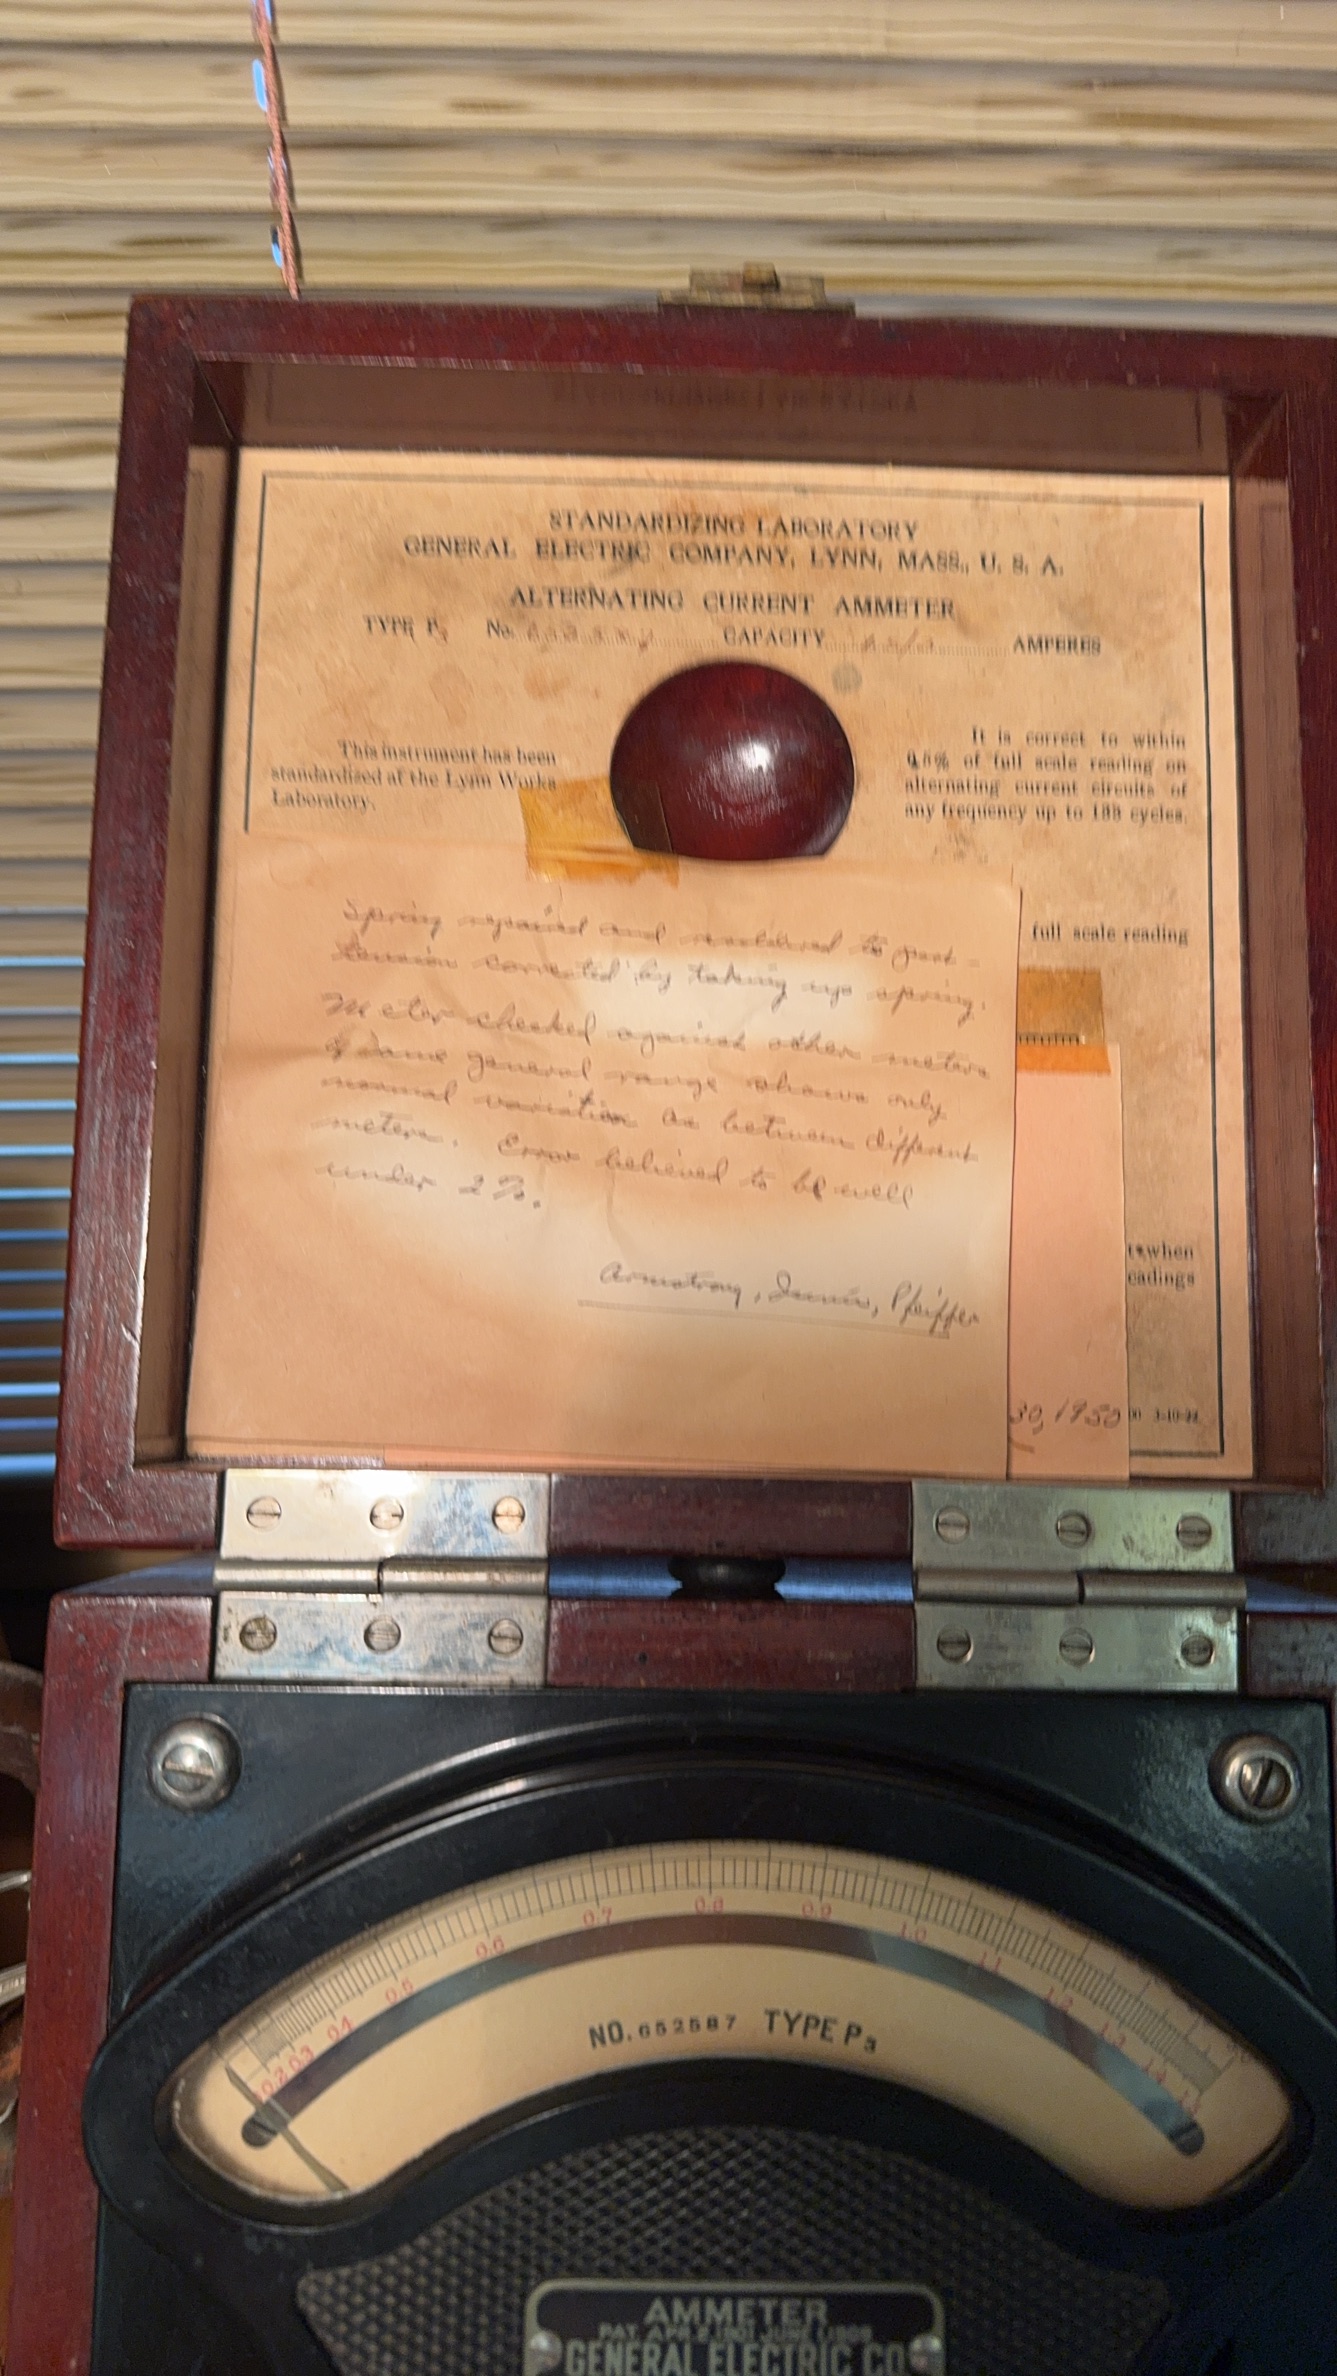 STANDARDIZING LABORATORY
GENERAL ELECTRIC COMPANY, LYNN, MASS., U. S. A.
ALTERNATING CURRENT AMMETER
TYPE P3 No. CAPACITY AMPERES
This instrument has been
standardized at the Lynn Works
Laboratory.
It is correct to within
0.5% of full scale reading on
alternating current circuits of
any frequency up to 133 cycles.
full scale reading
Spring repaired and restored to post -
tension corrected by taking up spring.
Meter checked against other meters
of same general range shows only
normal variation as between different
meters. Error believed to be well
under 2%.
Armstrong, Pfeiffer
when
eadings
30, 1950
0.2 0.3 0.4 0.5 0.6 0.7 0.8 0.9 1.0 1.1 1.2 1.3 1.4 1.5
NO. 652587 TYPE P3
AMMETER
GENERAL ELECTRIC CO